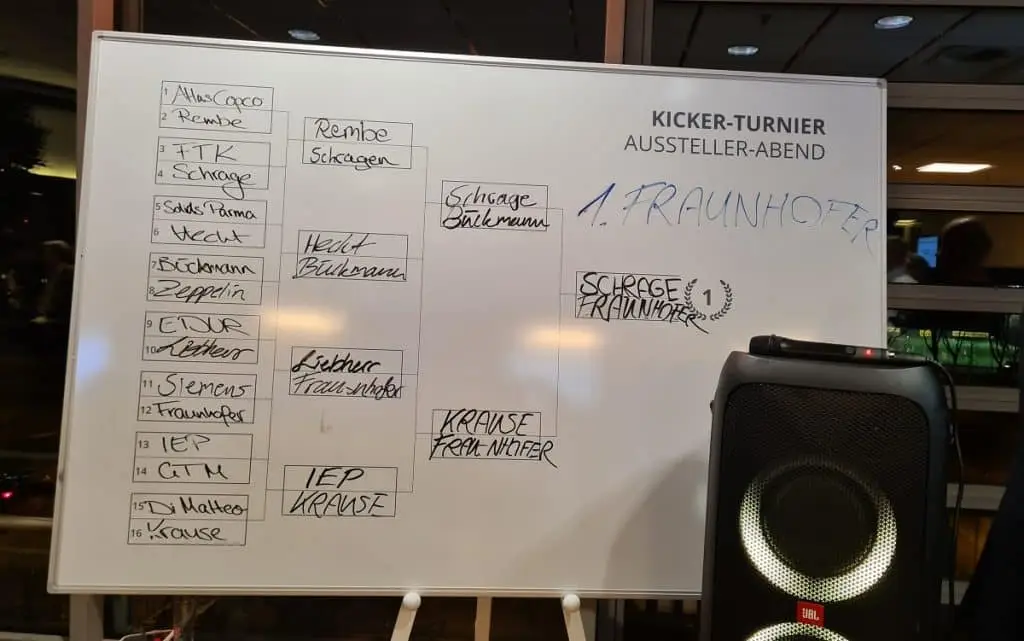 KICKER-TURNIER
AUSSTELLER-ABEND
1. FRAUNHOFER
1 Atlas Copco
2 Rembe
3 FTK
4 Schrage
5 Solids Parma
6 Hecht
7 Bückmann
8 Zeppelin
9 EDUR
10
11 Siemens
12 Fraunhofer
13 IEP
14 GTM
15 Di Matteo
16 Krause
Rembe
Schragen
Hecht
Bückmann
Liebherr
Fraunhofer
IEP
KRAUSE
Schrage
Bückmann
KRAUSE
FRAUNHOFER
SCHRAGE
FRAUNHOFER
1
JBL